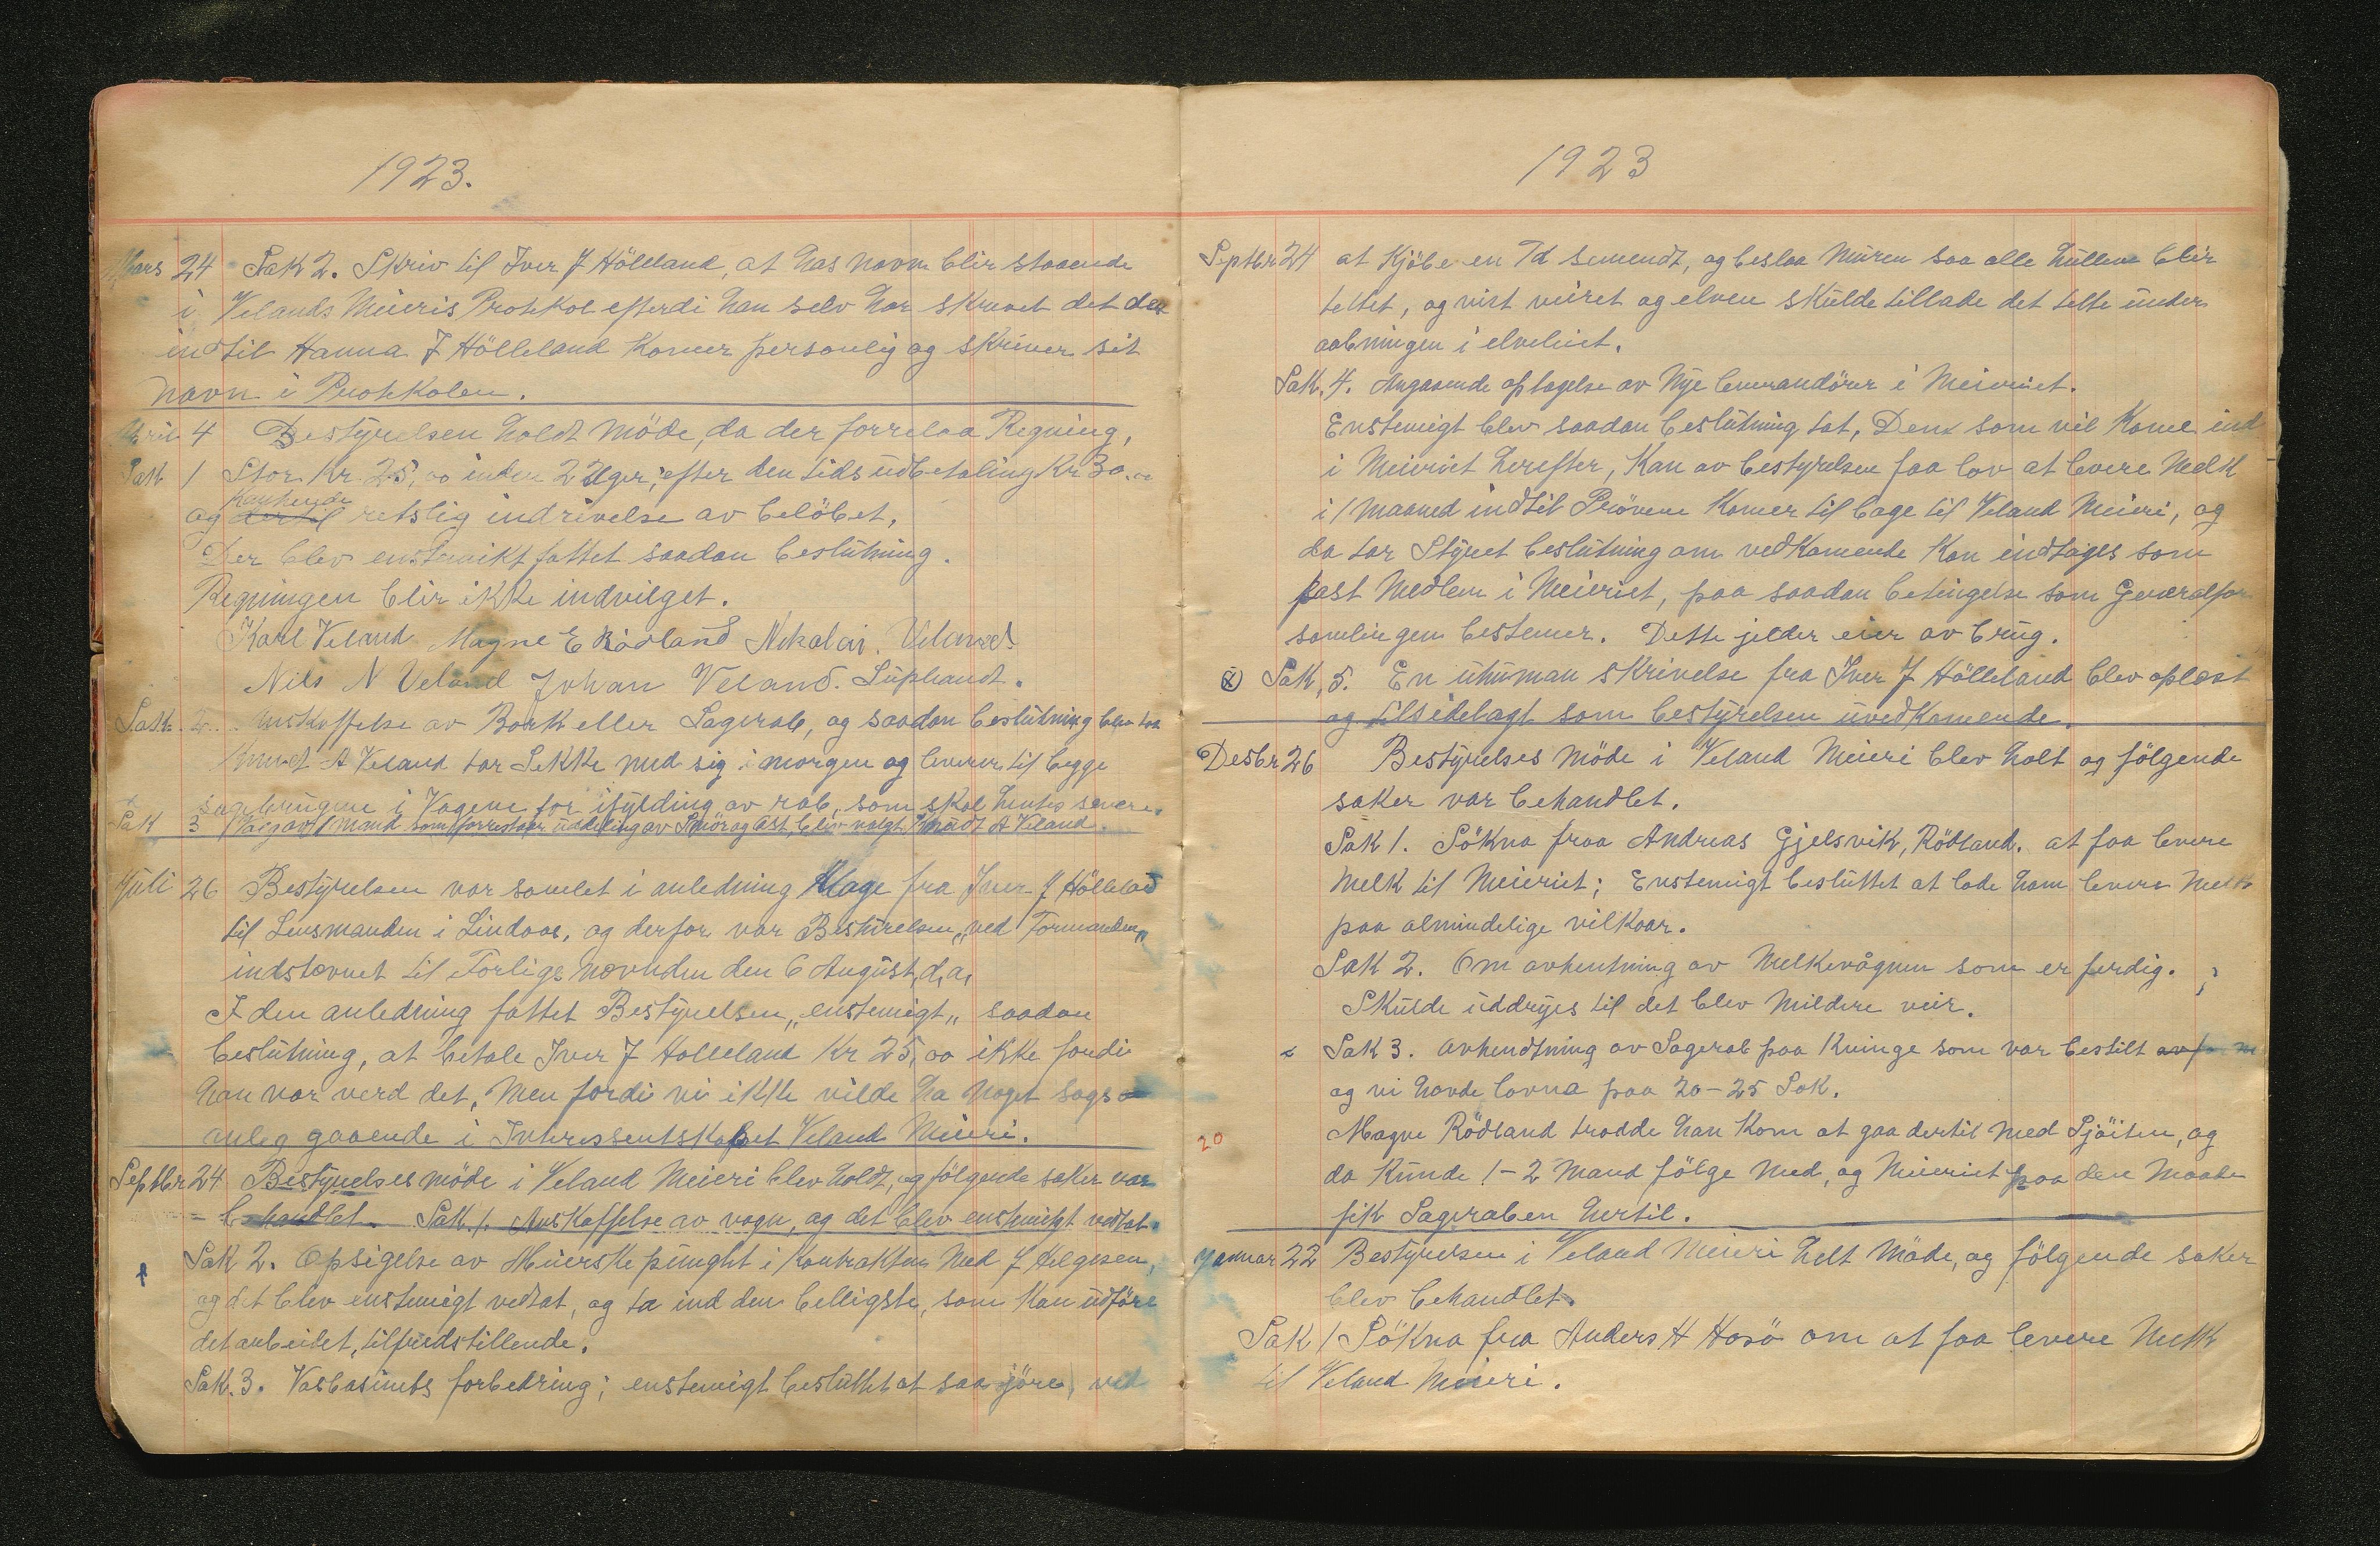 1923.
Mars 24 Sak 2. Skriv til Iver J Hölleland, at has navn blir staaende
i Velands Meieris Protokol efterdi han selv har skrevet det der
indtil Hanna J Hölleland Komer personlig og skriver sit
navn i Protokolen.
April 4 Bestyrelsen holdt möde, da der forrelaa Regning,
Sak 1 Stor Kr 25,00 inden 2 Uger, efter den tids udbetaling Kr 30.00
og dertil retslig indrivelse av belöbet,
Der blev enstemikt fattet saadan beslutning.
Regningen blir ikke indvilget.
Karl Veland Magne E Rödland Nikolai Veland
Nils N Veland Johan Veland. Supleandt.
Sak 2. Anskaffelse av Bark eller Sagerab, og saadan beslutning blev tat
Knudt A Veland tar Sekke med sig i morgen og leverer til begge
sagbrugene i Vagene for ifylding av rab, som skal hentes senere.
Sak 3 Valg av 1 mand som forrestaar uddeling av Smör og Ost blev valgt Knudt A Veland.
Juli 26 Bestyrelsen var samlet i anledning Klage fra Iver J Hölleland
til Lensmanden i Lindaas, og derfor var Bestirelsen „ved Formanden„
indstevnet til Forligsnevnden den 6 August, d, a,
I den anledning fattet Bestyrelsen „enstemigt„ saadan
beslutning, at betale Iver J Holleland Kr 25,00 ikke fordi
han var verd det, Men fordi vi ikke vilde ha noget sags
anleg gaaende i Interessentskabet Veland Meieri.
Septbr 24 Bestyrelses möde i Veland Meieri blev holdt, og fölgende saker var
behandlet. Sak. 1. Anskaffelse av vogn, og det blev enstemigt vedtat.
Sak 2. Opsigelse av Meierske punght i Kontrakten Med J Helgesen,
og det blev enstemigt vedtat, og ta ind den belligste, som Kan udföre
det arbeidet, tilfredstillende.
Sak. 3. Vasbasinets forbedring; enstemigt besluttet at saa jöre, ved
1923
Septbr 24 at Kjöbe en Td sement, og beslaa Muren saa alle hullene blir
tettet, og vist veiret og elven skulde tillade det tette under
aabningen i elveleiet.
Sak. 4. Angaaende optagelse av Nye leverandörer i Meieriet.
Enstemigt blev saadan beslutning tat, Den som vil Kome ind
i Meieriet herefter, Kan av bestyrelsen faa lov at levere Melk
i 1 Maaned indtil Prövene Komer til bage til Veland Meieri, og
da tar Styret beslutning om vedkomende Kan indtages som
fast Medlem i Meieriet, paa saadan betingelse som Generalfor
samlingen bestemer. Dette jelder eier av brug.
Sak, 5. En uhuman skrivelse fra Iver J Hölleland blev oplest
og tilsidelagt som bestyrelsen uvedkomende.
Desbr 26 Bestyrelses Möde i Veland Meieri blev holt og fölgende
saker var behandlet.
Sak 1. Sökna fraa Andreas Gjelsvik, Rödland. at faa levere
Melk til Meieriet; Enstemigt besluttet at lade ham levere Melk
paa almindelige vilkaar.
Sak 2. Om avhentning av Melkevågnen som er ferdig. ;
Skulde uddryes til det blev Mildere veir.
Sak 3. avhendtning av Sagerab paa Kvinge som var bestilt
og vi havde lovna paa 20-25 Sak.
20 Magne Rödland trodde han Kom at gaa dertil med Sjöiten, og
da Kunde 1-2 Mand fölge Med, og Meieriet paa den Maate
fik Sageraben hertil.
Januar 22 Bestyrelsen i Veland Meieri helt Möde, og fölgende saker
blev behandlet.
Sak 1 Sökna fra Anders H Hosö om at faa levere Melk
til Veland Meieri.